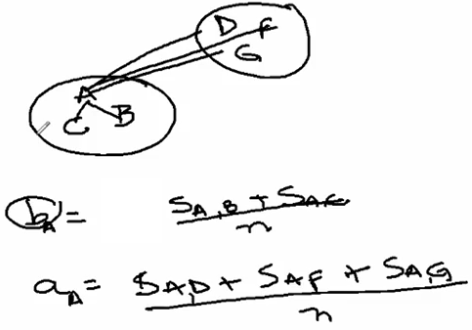 D F
G
A
C B
b_A = (S_{A,B} + S_{A,C}) / n
a_A = (S_{A,D} + S_{A,F} + S_{A,G}) / n